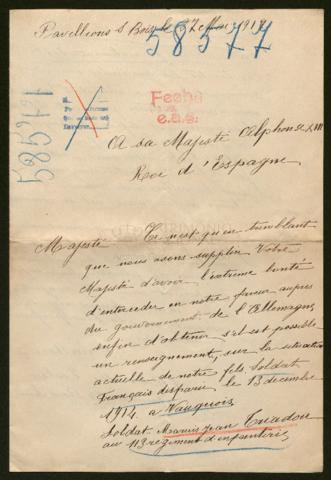 Pavillons s Bois le 1917
58577
58577
Fecha
e.a.s.
A sa Majesté Alphonse XIII
Roi d'Espagne
Majesté Ce n'est qu'en tremblant
que nous osons supplier Votre
Majesté d'avoir l'extreme bonté
d'interceder en notre faveur aupres
du gouvernement de l'Allemagne,
enfin d'obtenir s'il est possible
un renseignement, sur la situation
actuelle de notre fils Soldat
Français disparu le 13 decembre
1914 a Vauquois
Soldat Jean
au 113 regiment d'infanterie,